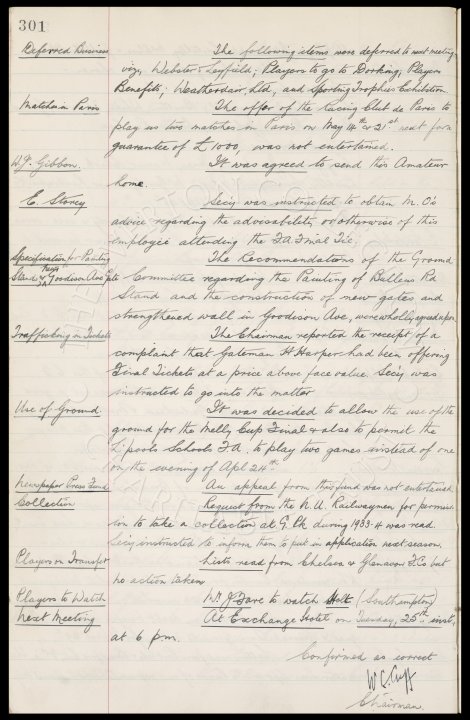 301
Deferred Business The following items were deferred to next meeting
viz, Webster & Leyfield; Players to go to Dorking; Players
Benefits; Weatherdair Ltd, and Sporting Trophies Exhibition
Match in Paris The offer of the Racing Club de Paris to
play us two matches in Paris on May 14th & 21st next for a
guarantee of £1000, was not entertained.
Gibbon. It was agreed to send this Amateur
home.
E. Storey Secy was instructed to obtain M.O's
advice regarding the advisability or otherwise of this
employee attending the F.A. Final Tie.
Specification for Painting The Recommendations of the Ground
Stand & New Goodison Ave Gate Committee regarding the Painting of Bullens Rd
Stand and the construction of new gates and
strengthened wall in Goodison Ave, were wholly agreed upon
Trafficking in Tickets The Chairman reported the receipt of a
complaint that Gateman H Harper had been offering
Final Tickets at a price above face value. Secy was
instructed to go into the matter
Use of Ground. It was decided to allow the use of the
ground for the Melly Cup Final & also to permit the
L'pool Schools F.A. to play two games instead of one
on the evening of Apl 24th.
Newspaper Press Fund An appeal from this fund was not entertained.
Collection Request from the N.U. Railwaymen for permiss-
ion to take a collection at G. Pk during 1933-4 was read.
Secy instructed to inform them to put in application next season.
Players on Transfer Lists read from Chelsea & Glenavon F.Cs but
no action taken
Players to Watch Mr J Fare to watch Holt (Southampton)
Next Meeting At Exchange Hotel on Tuesday, 25th inst,
at 6 pm.
Confirmed as correct
W.C. Cuff
Chairman.